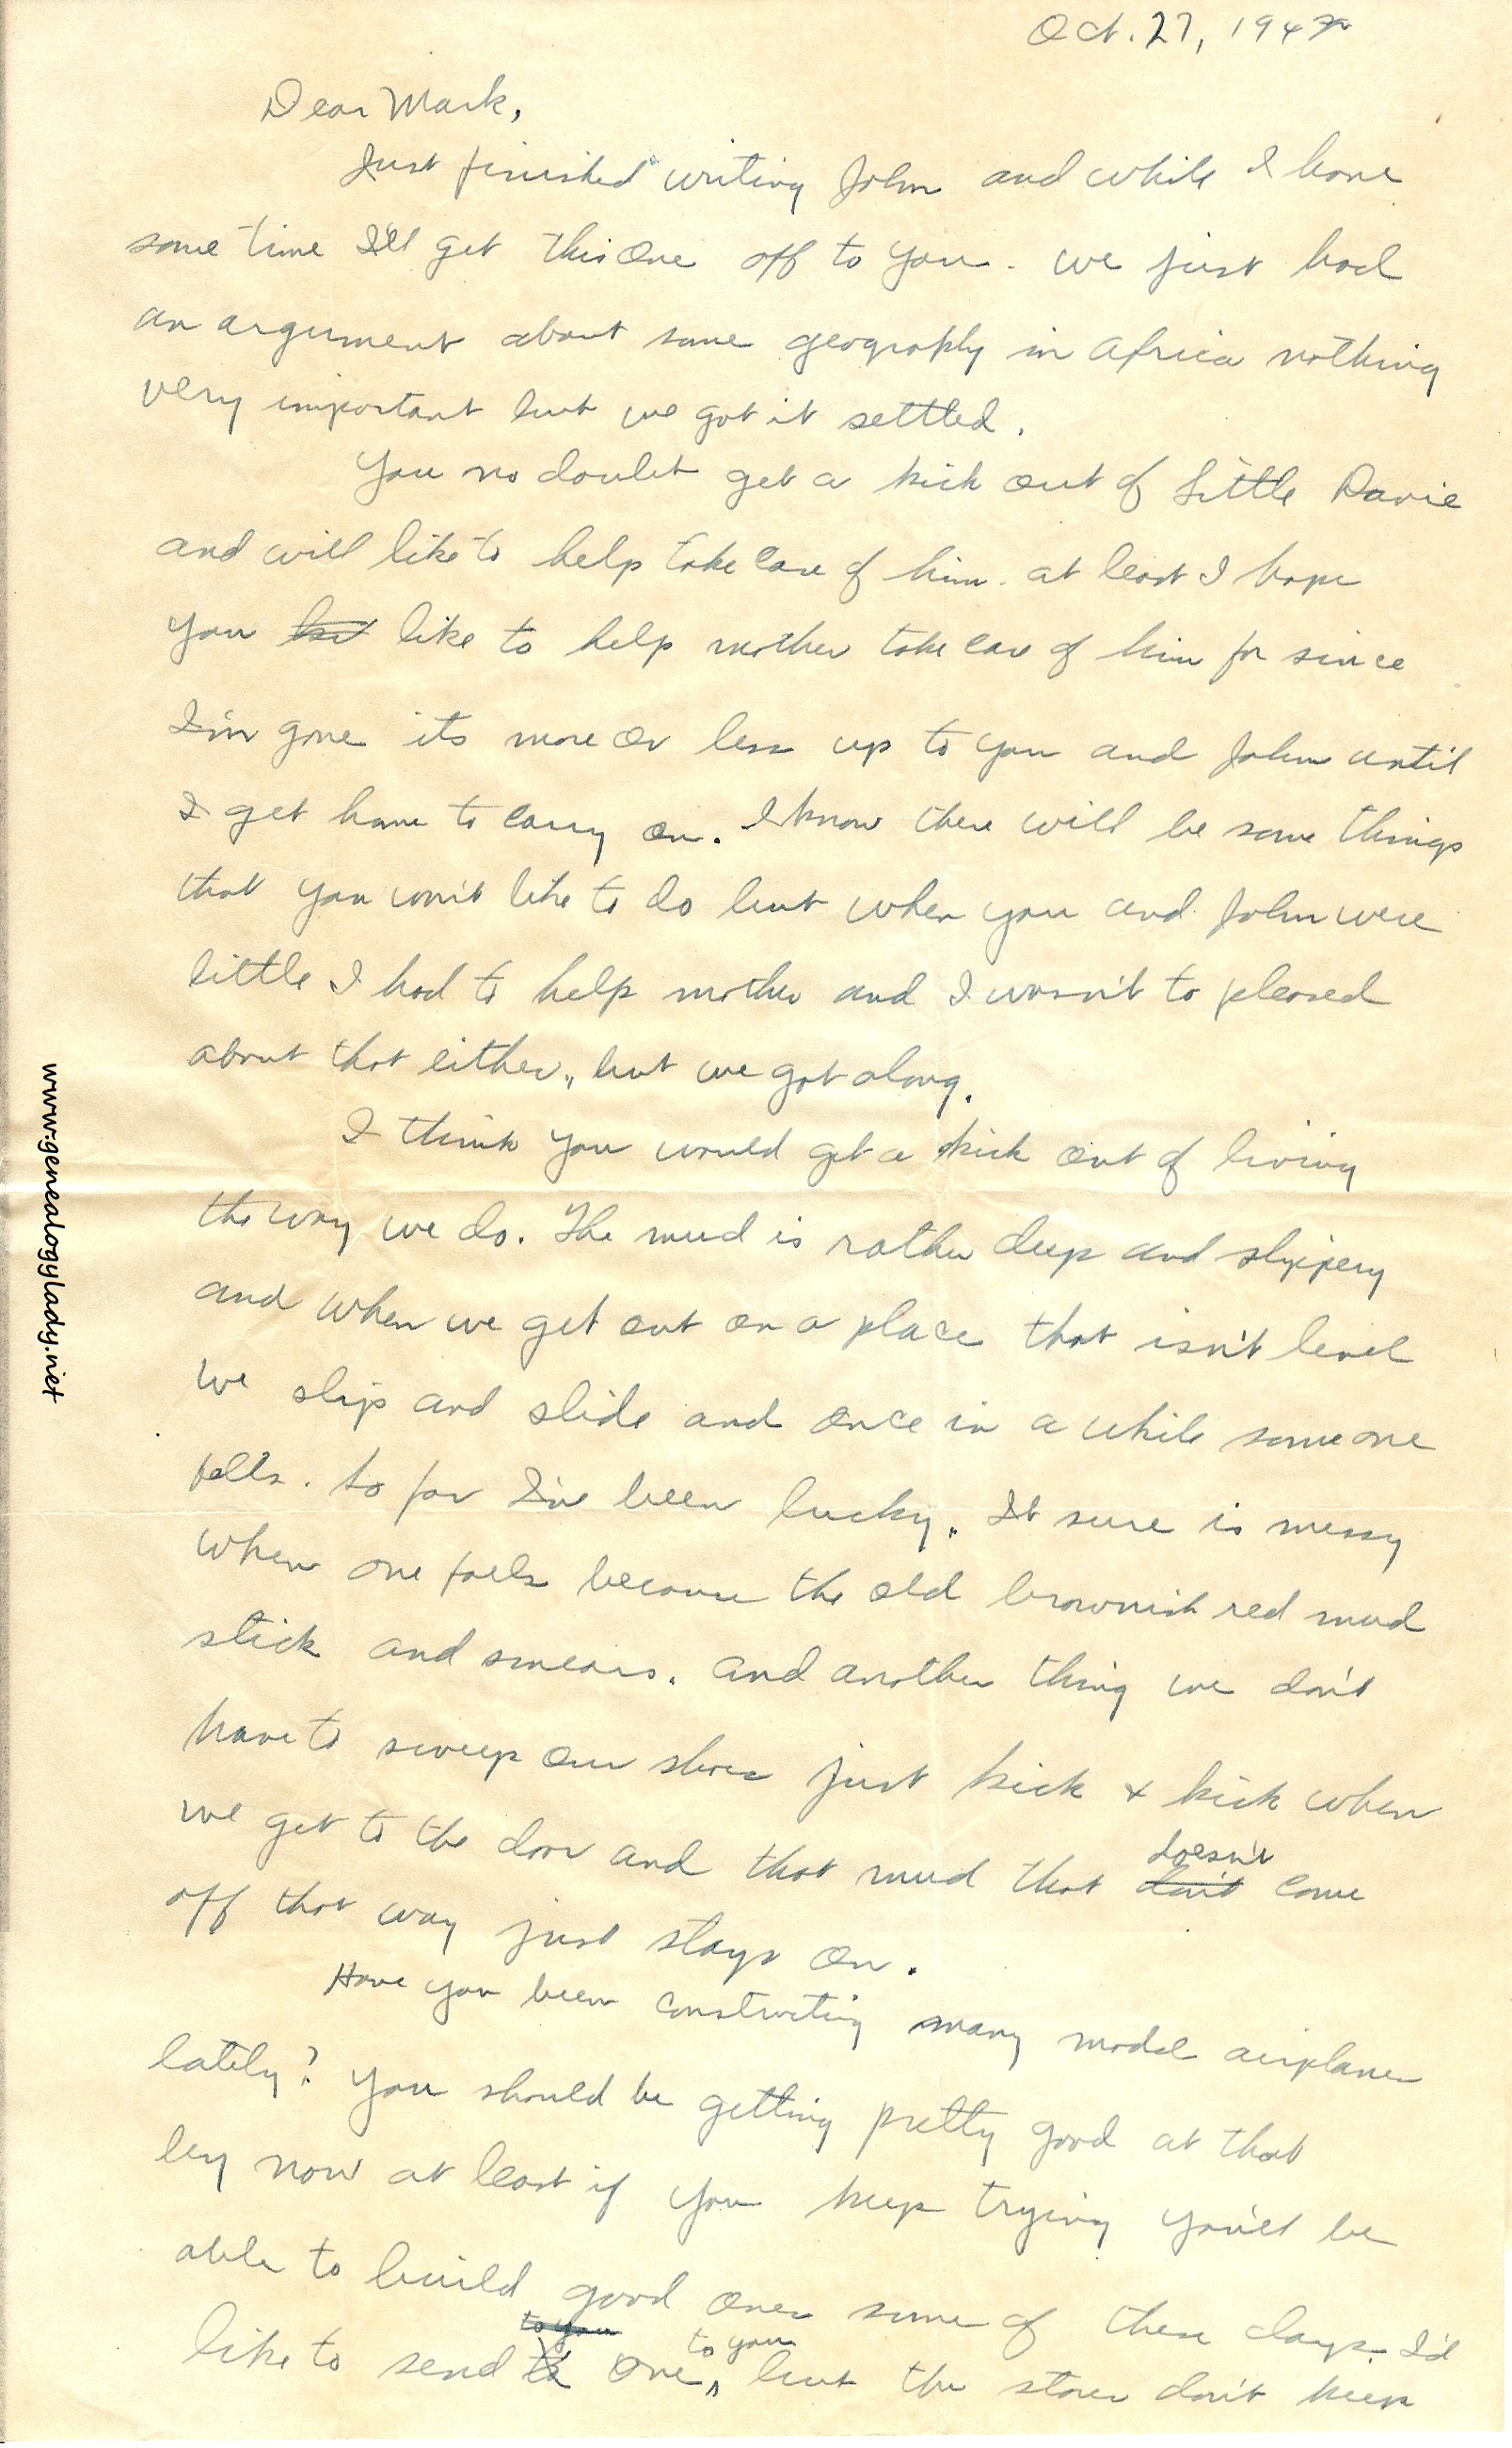 Oct. 27, 194
Dear Mark,
Just finished writing John and while I have
some time I'll get this one off to you. We just had
an argument about some geography in Africa nothing
very important but we got it settled.
You no doubt get a kick out of Little Davie
and will like to help take care of him. at least I hope
you like to help mother take care of him for since
I'm gone its more or less up to you and John until
I get home to carry on. I know there will be some things
that you won't like to do but when you and John were
little I had to help mother and I wasn't to pleased
about that either, but we got along.
I think you would get a kick out of living
the way we do. The mud is rather deep and slippery
and when we get out on a place that isn't level
we slip and slide and once in a while someone
falls. So far I've been lucky. It sure is messy
when one falls because the old brownish red mud
stick and smears. And another thing we don't
have to sweep our shoes just kick + kick when
we get to the door and that mud that don't doesn't come
off that way just stays on.
Have you been constructing many model airplanes
lately? You should be getting pretty good at that
by now at least if you keep trying you'll be
able to build good ones some of these days. I'd
like to send to you one to you, but the stores don't keep
www.genealogylady.net